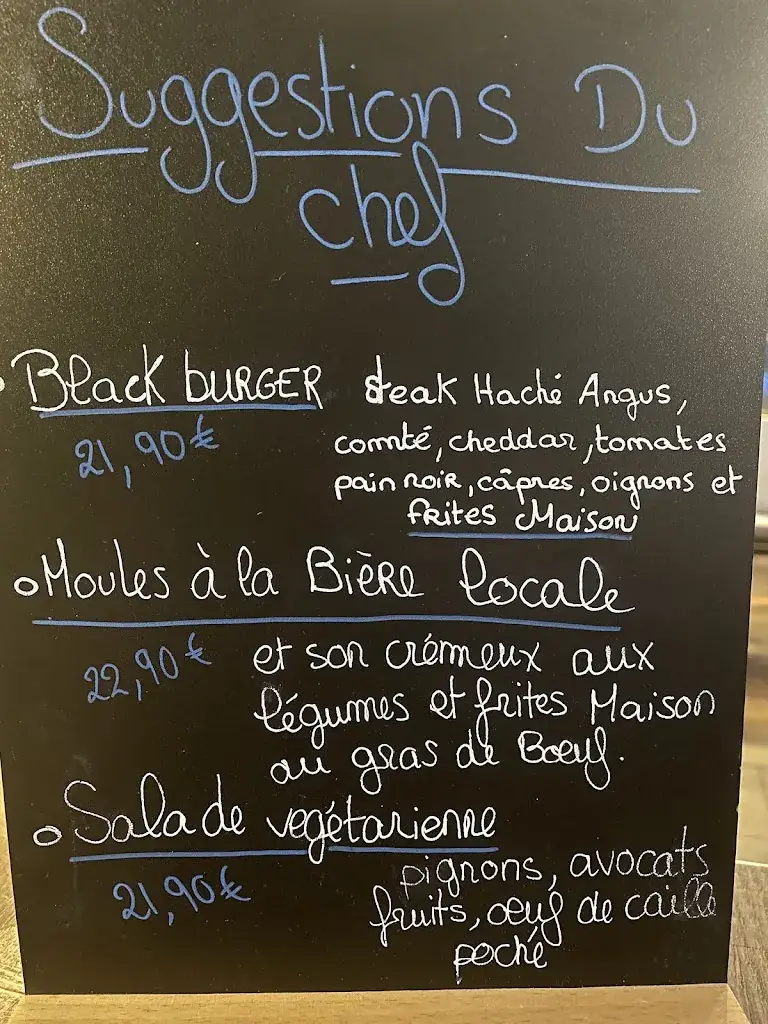 Suggestions Du
chef
Black BURGER steak Haché Angus,
21,90€ comté, cheddar, tomates
pain noir, câpres, oignons et
frites Maison
Moules à la Bière locale
22,90€ et son crémeux aux
légumes et frites Maison
au gras de Boeuf.
Salade vegétarienne
21,90€ pignons, avocats
fruits, oeuf de caille
poché